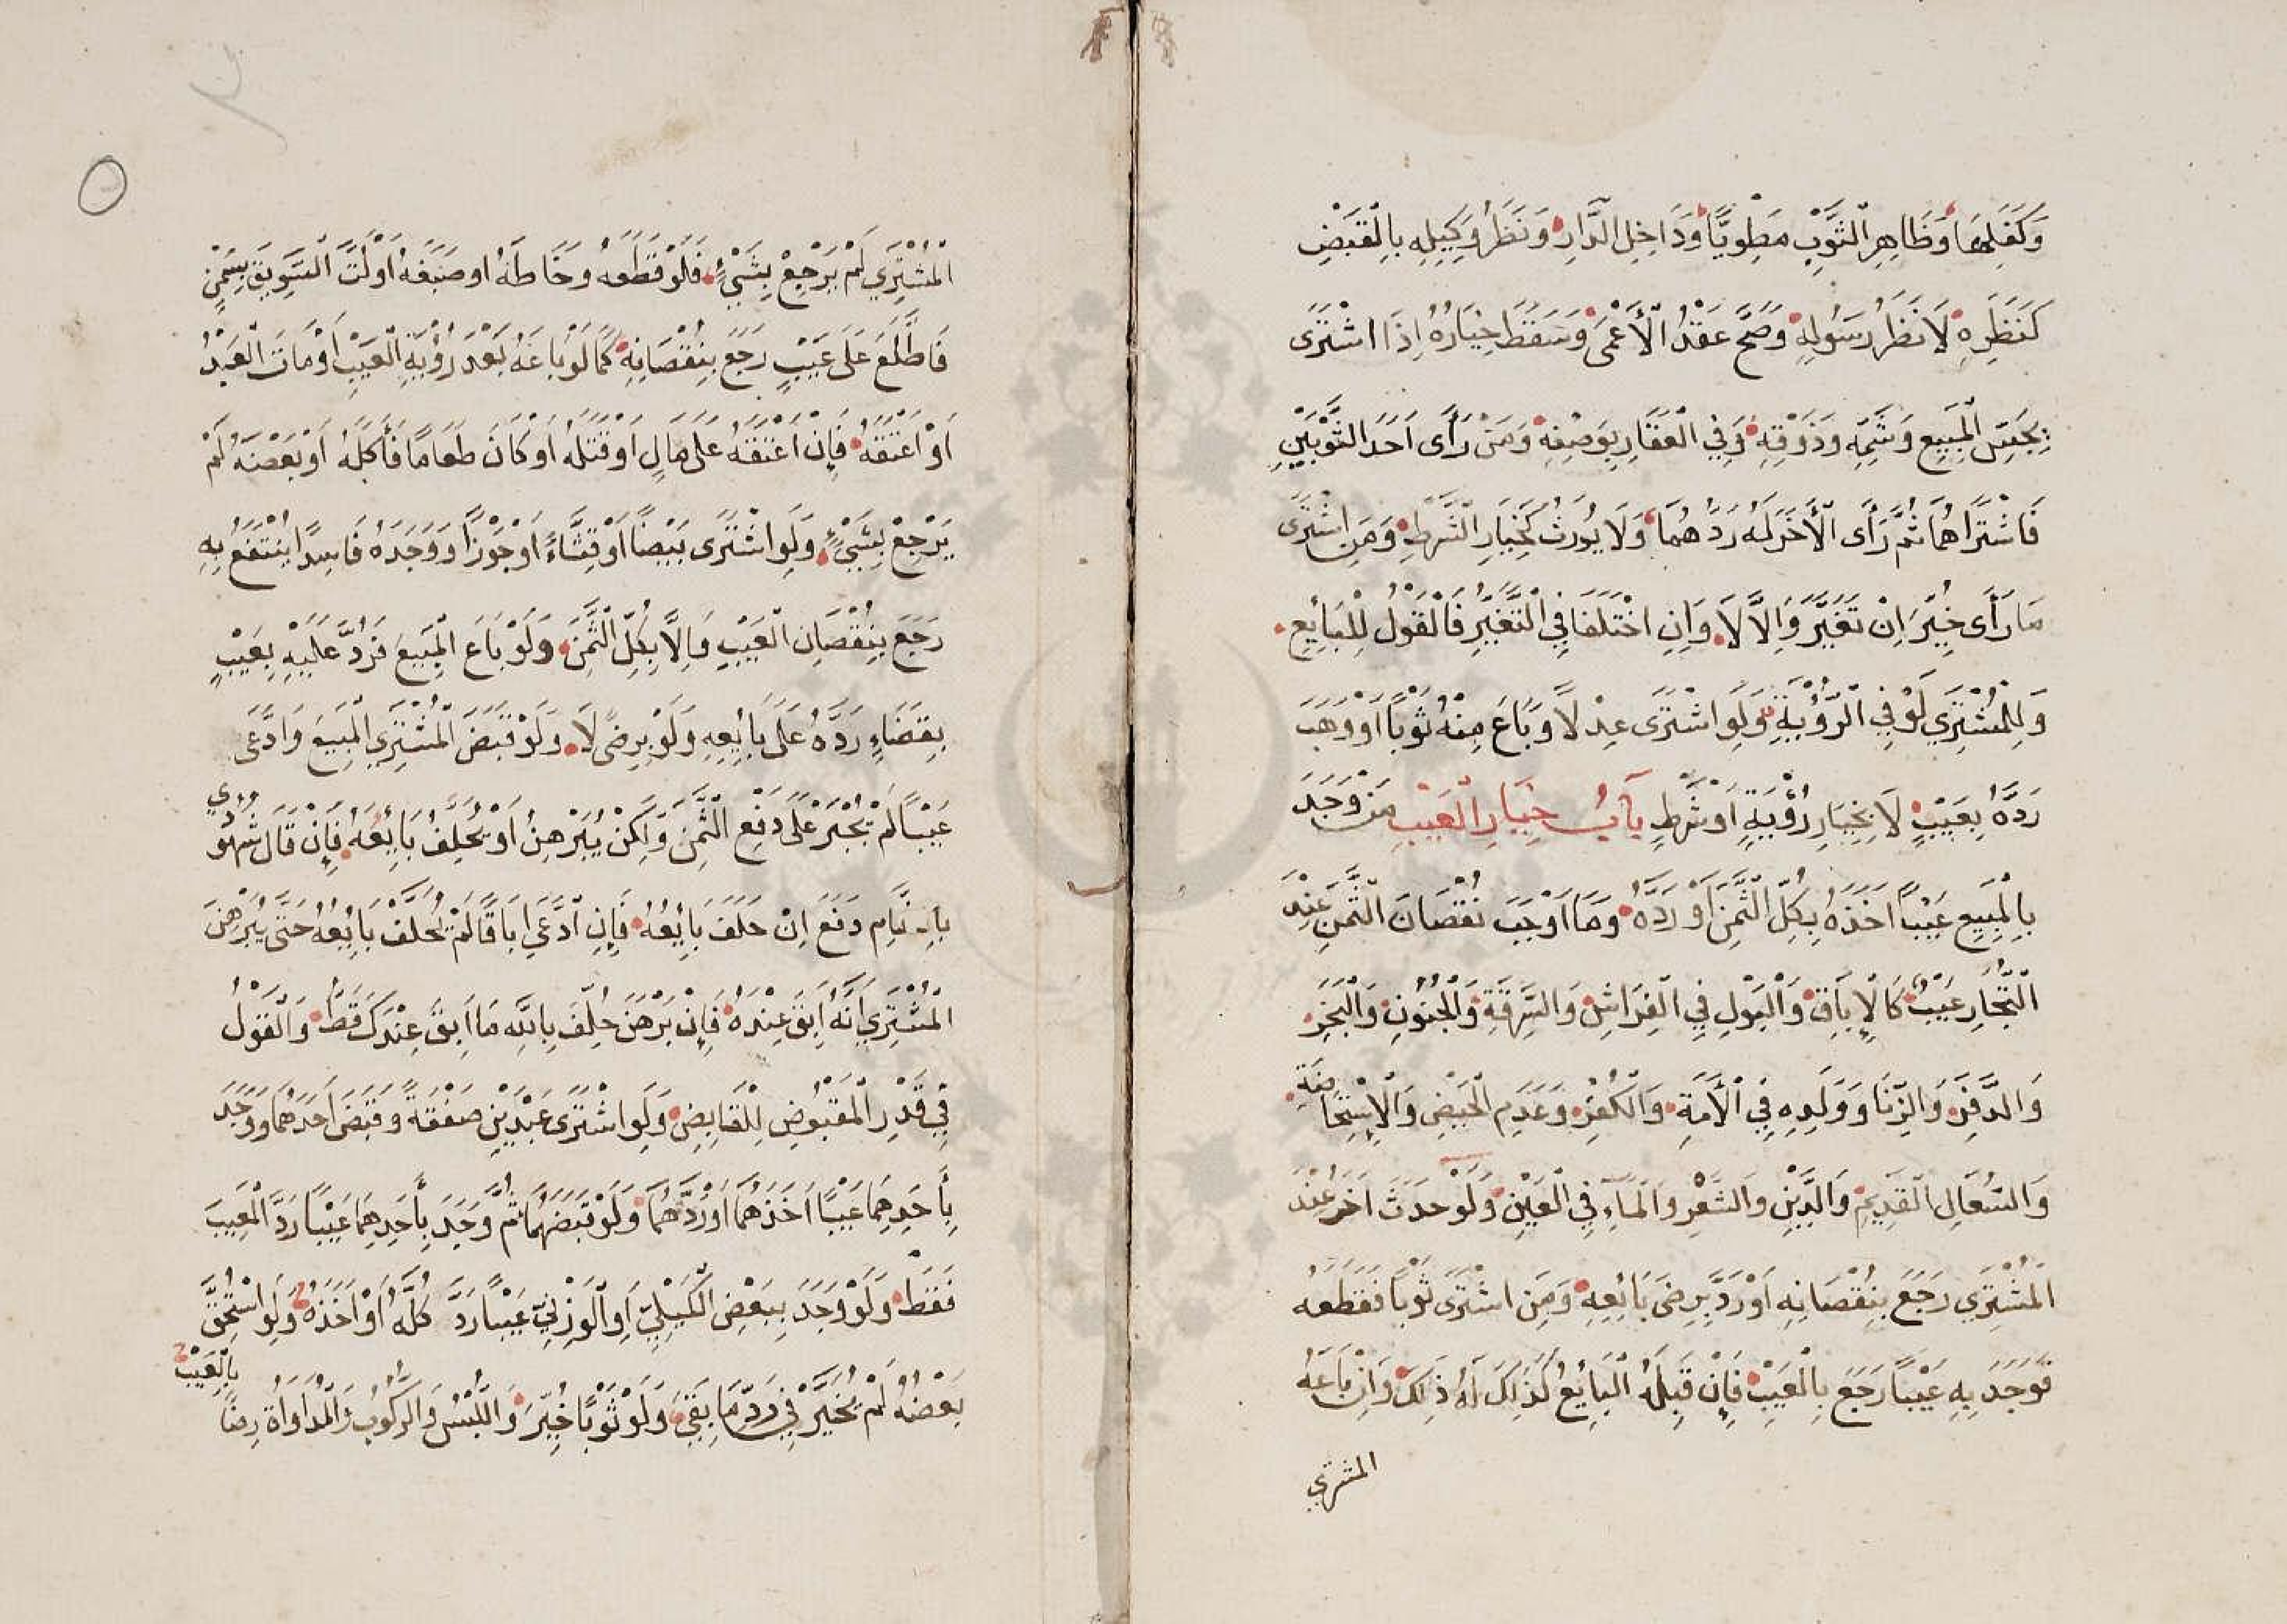 وَكَفَلِهَا وَظَاهِرِ الثَّوْبِ مَطْوِيًّا وَدَاخِلِ الدَّارِ وَنَظَرُ وَكِيلِهِ بِالْقَبْضِ
كَنَظَرِهِ لَا نَظَرُ رَسُولِهِ وَصَحَّ عَقْدُ الْأَعْمَى وَسَقَطَ خِيَارُهُ اِذَا اشْتَرَى
بِجَسِّ الْمَبِيعِ وَشَمِّهِ وَذَوْقِهِ وَفِي الْعَقَارِ بِوَصْفِهِ وَمَنْ رَأَى اَحَدَ الثَّوْبَيْنِ
فَاشْتَرَاهُمَا ثُمَّ رَأَى الْأَخَرَ لَهُ رَدُّهُمَا وَلَا يُورَثُ كَخِيَارِ الشَّرْطِ وَمَنِ اشْتَرَى
مَا رَأَى خُيِّرَ اِنْ تَغَيَّرَ وَاِلَّا لَا وَاِنِ اخْتَلَفَا فِي التَّغَيُّرِ فَالْقَوْلُ لِلْبَائِعِ
وَلِلْمُشْتَرِي لَوْ فِي الرُّؤْيَةِ وَلَوِ اشْتَرَى عِدْلًا وَبَاعَ مِنْهُ ثَوْبًا اَوْ وَهَبَ
رَدَّهُ بِعَيْبٍ لَا بِخِيَارِ رُؤْيَةٍ اَوْ شَرْطٍ بَابُ خِيَارِ الْعَيْبِ مَنْ وَجَدَ
بِالْمَبِيعِ عَيْبًا اَخَذَهُ بِكُلِّ الثَّمَنِ اَوْ رَدَّهُ وَمَا اَوْجَبَ نُقْصَانَ الثَّمَنِ عِنْدَ
التُّجَّارِ عَيْبٌ كَالْاِبَاقِ وَالْبَوْلِ فِي الْفِرَاشِ وَالسَّرِقَةِ وَالْجُنُونِ وَالْبَخَرِ
وَالدَّفَرِ وَالزِّنَا وَوَلَدِهِ فِي الْأَمَةِ وَالْكُفْرِ وَعَدَمِ الْحَيْضِ وَالْاِسْتِحَاضَةِ
وَالسُّعَالِ الْقَدِيمِ وَالدَّيْنِ وَالشَّعْرِ وَالْمَاءِ فِي الْعَيْنِ وَلَوْ حَدَثَ اَخَرُ عِنْدَ
الْمُشْتَرِي رَجَعَ بِنُقْصَانِهِ اَوْ رَدَّ بِرِضَى بَائِعِهِ وَمَنِ اشْتَرَى ثَوْبًا فَقَطَعَهُ
فَوَجَدَ بِهِ عَيْبًا رَجَعَ بِالْعَيْبِ فَاِنْ قَبِلَهُ الْبَائِعُ كَذٰلِكَ لَهُ ذٰلِكَ وَاِنْ بَاعَهُ
المشتري
الْمُشْتَرِي لَمْ يَرْجِعْ بِشَيْءٍ فَلَوْ قَطَعَهُ وَخَاطَهُ اَوْ صَبَغَهُ اَوْ لَتَّ السَّوِيقَ بِسَمْنٍ
فَاطَّلَعَ عَلَى عَيْبٍ رَجَعَ بِنُقْصَانِهِ كَمَا لَوْ بَاعَهُ بَعْدَ رُؤْيَةِ الْعَيْبِ اَوْ مَاتَ الْعَبْدُ
اَوْ اَعْتَقَهُ فَاِنْ اَعْتَقَهُ عَلَى مَالٍ اَوْ قَتَلَهُ اَوْ كَانَ طَعَامًا فَأَكَلَهُ اَوْ بَعْضَهُ لَمْ
يَرْجِعْ بِشَيْءٍ وَلَوِ اشْتَرَى بَيْضًا اَوْ قِثَّاءً اَوْ جَوْزًا وَوَجَدَهُ فَاسِدًا يُنْتَفَعُ بِهِ
رَجَعَ بِنُقْصَانِ الْعَيْبِ وَاِلَّا بِكُلِّ الثَّمَنِ وَلَوْ بَاعَ الْمَبِيعَ فَرُدَّ عَلَيْهِ بِعَيْبٍ
بِقَضَاءٍ رَدَّهُ عَلَى بَائِعِهِ وَلَوْ بِرِضًى لَا وَلَوْ قَبَضَ الْمُشْتَرِي الْمَبِيعَ وَادَّعَى
عَيْبًا لَمْ يُجْبَرْ عَلَى دَفْعِ الثَّمَنِ وَلَكِنْ يُبَرْهِنُ اَوْ يُحَلِّفُ بَائِعَهُ فَاِنْ قَالَ شُهُودِي
بِالشَّامِ دَفَعَ اِنْ حَلَفَ بَائِعُهُ فَاِنِ ادَّعَى اِبَاقًا لَمْ يُحَلَّفْ بَائِعُهُ حَتَّى يُبَرْهِنَ
الْمُشْتَرِي اَنَّهُ اَبَقَ عِنْدَهُ فَاِنْ بَرْهَنَ حُلِّفَ بِاللّٰهِ مَا اَبَقَ عِنْدَكَ قَطُّ وَالْقَوْلُ
فِي قَدْرِ الْمَقْبُوضِ لِلْقَابِضِ وَلَوِ اشْتَرَى عَبْدَيْنِ صَفْقَةً وَقَبَضَ اَحَدَهُمَا وَوَجَدَ
بِأَحَدِهِمَا عَيْبًا اَخَذَهُمَا اَوْ رَدَّهُمَا وَلَوْ قَبَضَهُمَا ثُمَّ وَجَدَ بِأَحَدِهِمَا عَيْبًا رَدَّ الْمَعِيبَ
فَقَطْ وَلَوْ وَجَدَ بِبَعْضِ الْكَيْلِيِّ اَوِ الْوَزْنِيِّ عَيْبًا رَدَّ كُلَّهُ اَوْ اَخَذَهُ وَلَوِ اسْتُحِقَّ
بَعْضُهُ لَمْ يُخَيَّرْ فِي رَدِّ مَا بَقِيَ وَلَوْ ثَوْبًا خُيِّرَ وَاللُّبْسُ وَالرُّكُوبُ وَالْمُدَاوَاةُ رِضًا بِالْعَيْبِ